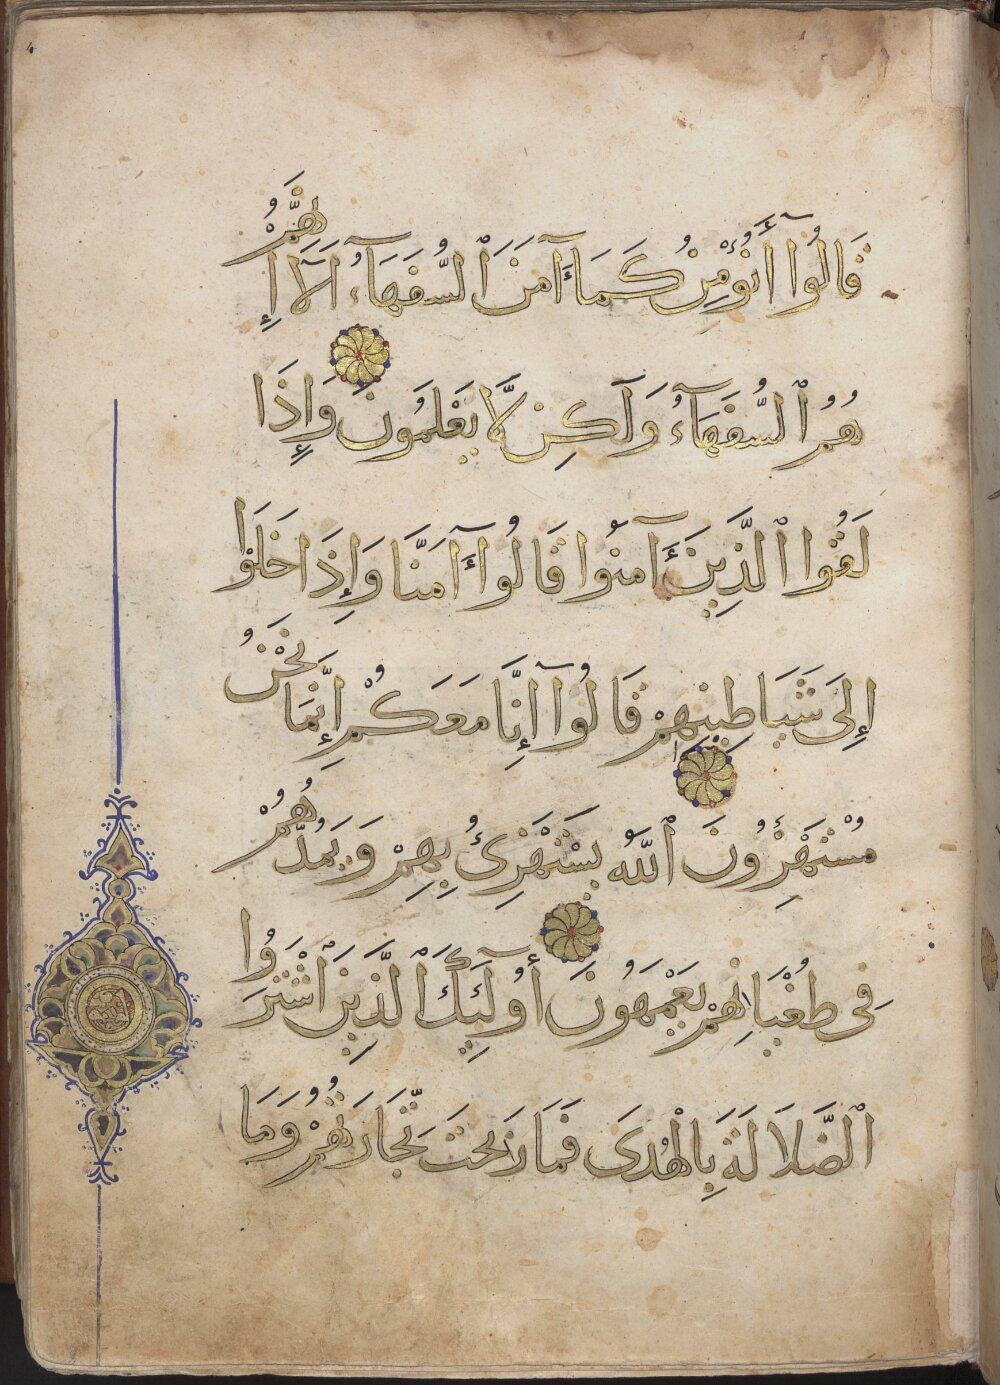 قَالُوٓا۟ أَنُؤْمِنُ كَمَآ ءَامَنَ ٱلسُّفَهَآءُ أَلَآ إِنَّهُمْ
هُمُ ٱلسُّفَهَآءُ وَلَٰكِن لَّا يَعْلَمُونَ وَإِذَا
لَقُوا۟ ٱلَّذِينَ ءَامَنُوا۟ قَالُوٓا۟ ءَامَنَّا وَإِذَا خَلَوْا۟
إِلَىٰ شَيَاطِينِهِمْ قَالُوٓا۟ إِنَّا مَعَكُمْ إِنَّمَا نَحْنُ
مُسْتَهْزِءُونَ ٱللَّهُ يَسْتَهْزِئُ بِهِمْ وَيَمُدُّهُمْ
فِى طُغْيَانِهِمْ يَعْمَهُونَ أُو۟لَٰٓئِكَ ٱلَّذِينَ ٱشْتَرَوُا۟
ٱلضَّلَالَةَ بِالْهُدَىٰ فَمَا رَبِحَت تِّجَارَتُهُمْ وَمَا